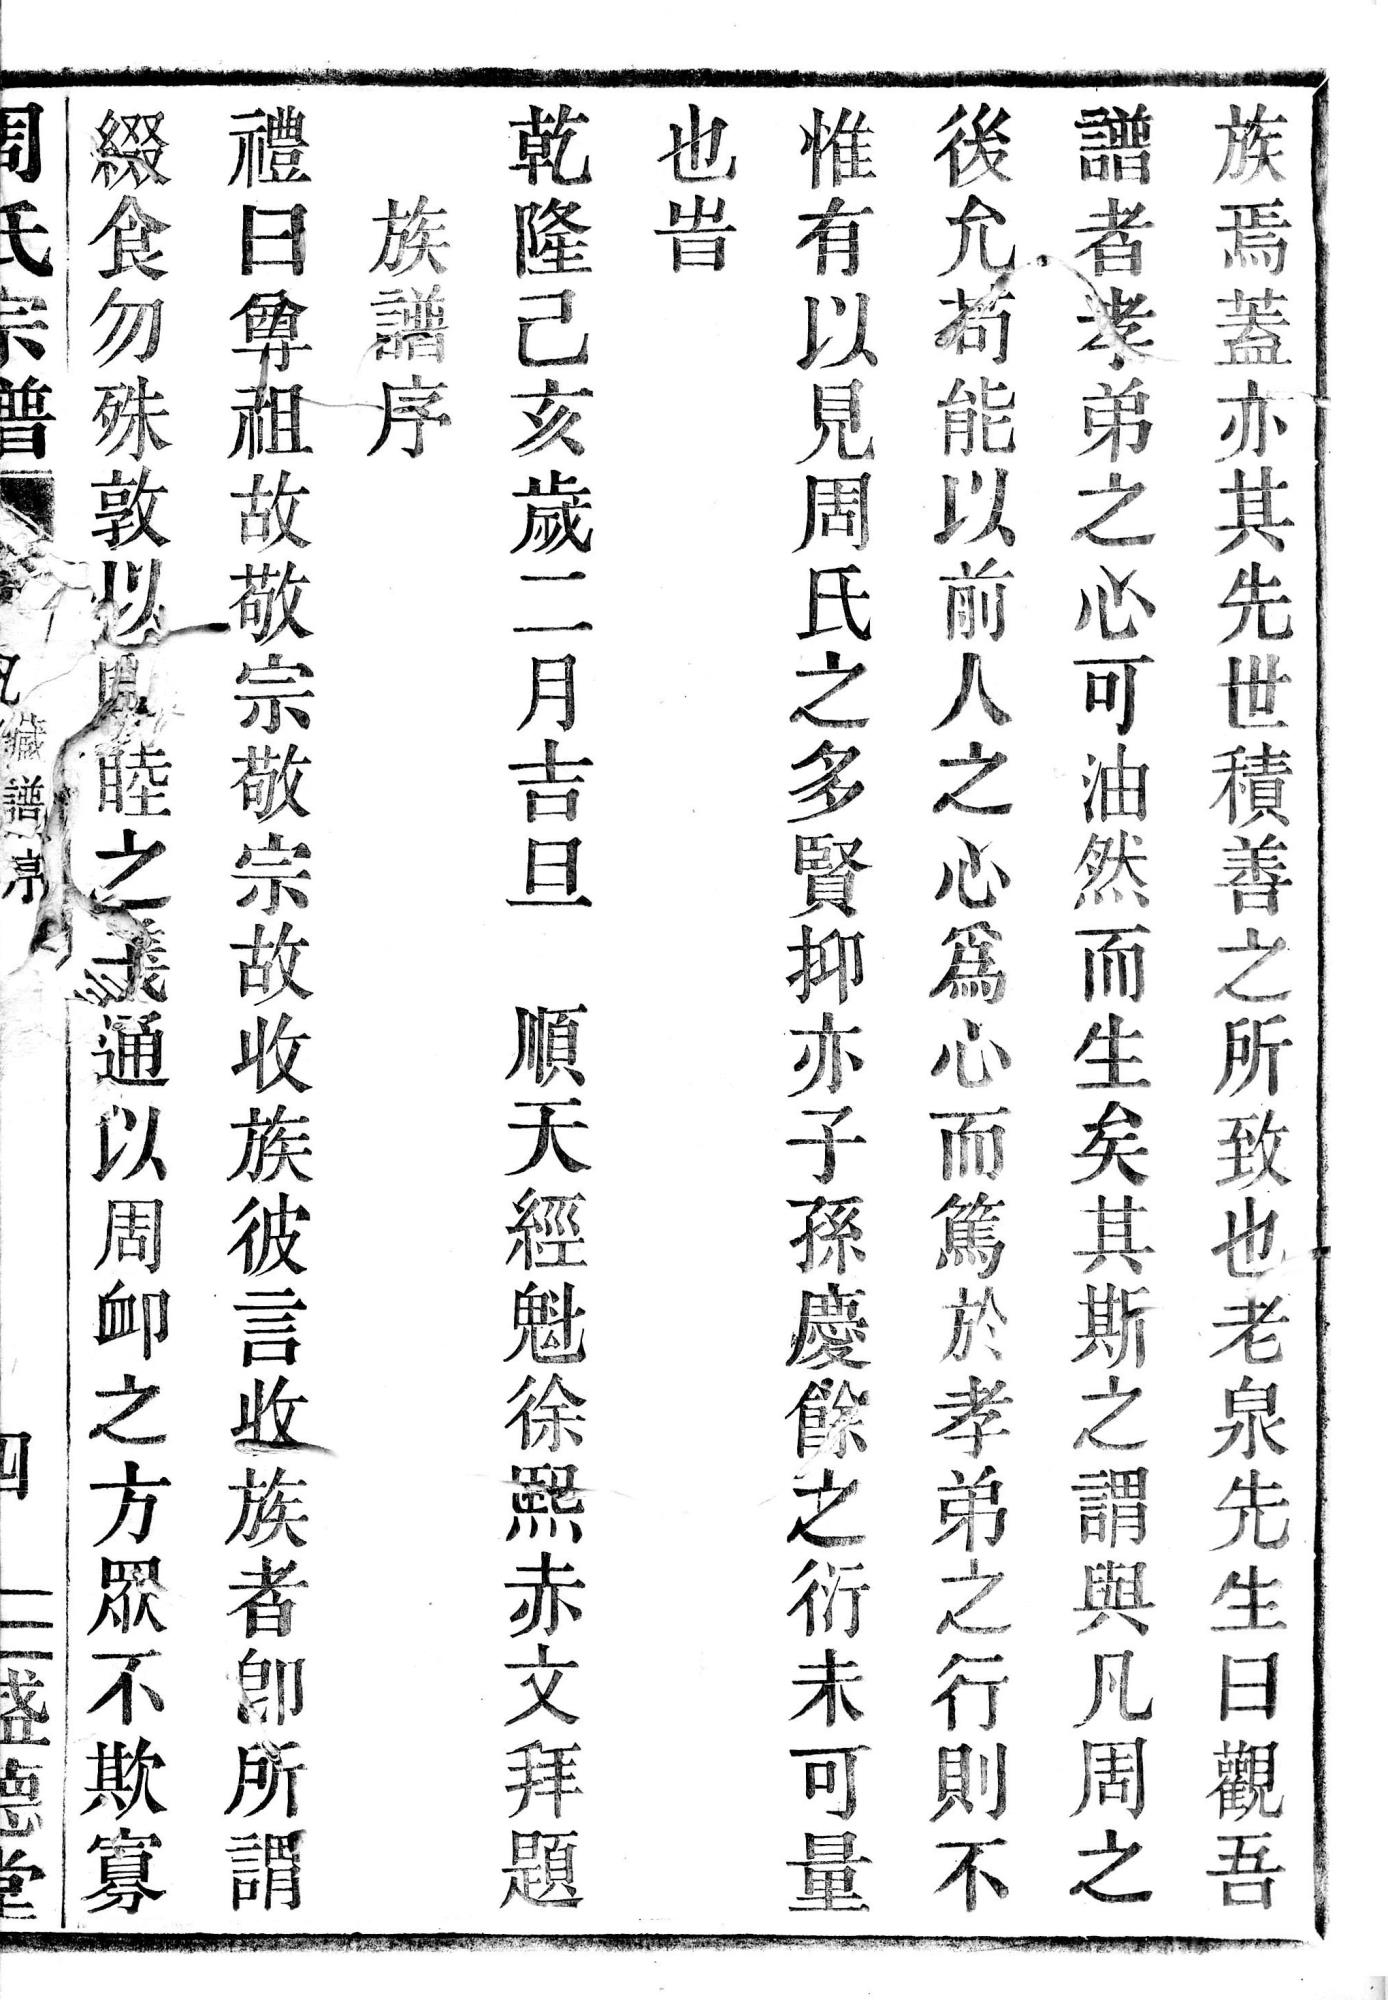 族焉蓋亦其先世積善之所致也老泉先生曰觀吾
譜者孝弟之心可油然而生矣其斯之謂與凡周之
後允若能以前人之心爲心而篤於孝弟之行則不
惟有以見周氏之多賢抑亦子孫慶餘之衍未可量
也旹
乾隆己亥歲二月吉旦 順天經魁徐熙赤文拜題
族譜序
禮曰尊祖故敬宗敬宗故收族彼言收族者卽所謂
綴食勿殊敦以睦之義通以周卹之方眾不欺寡
周氏宗譜 藏譜序 四 盛德堂